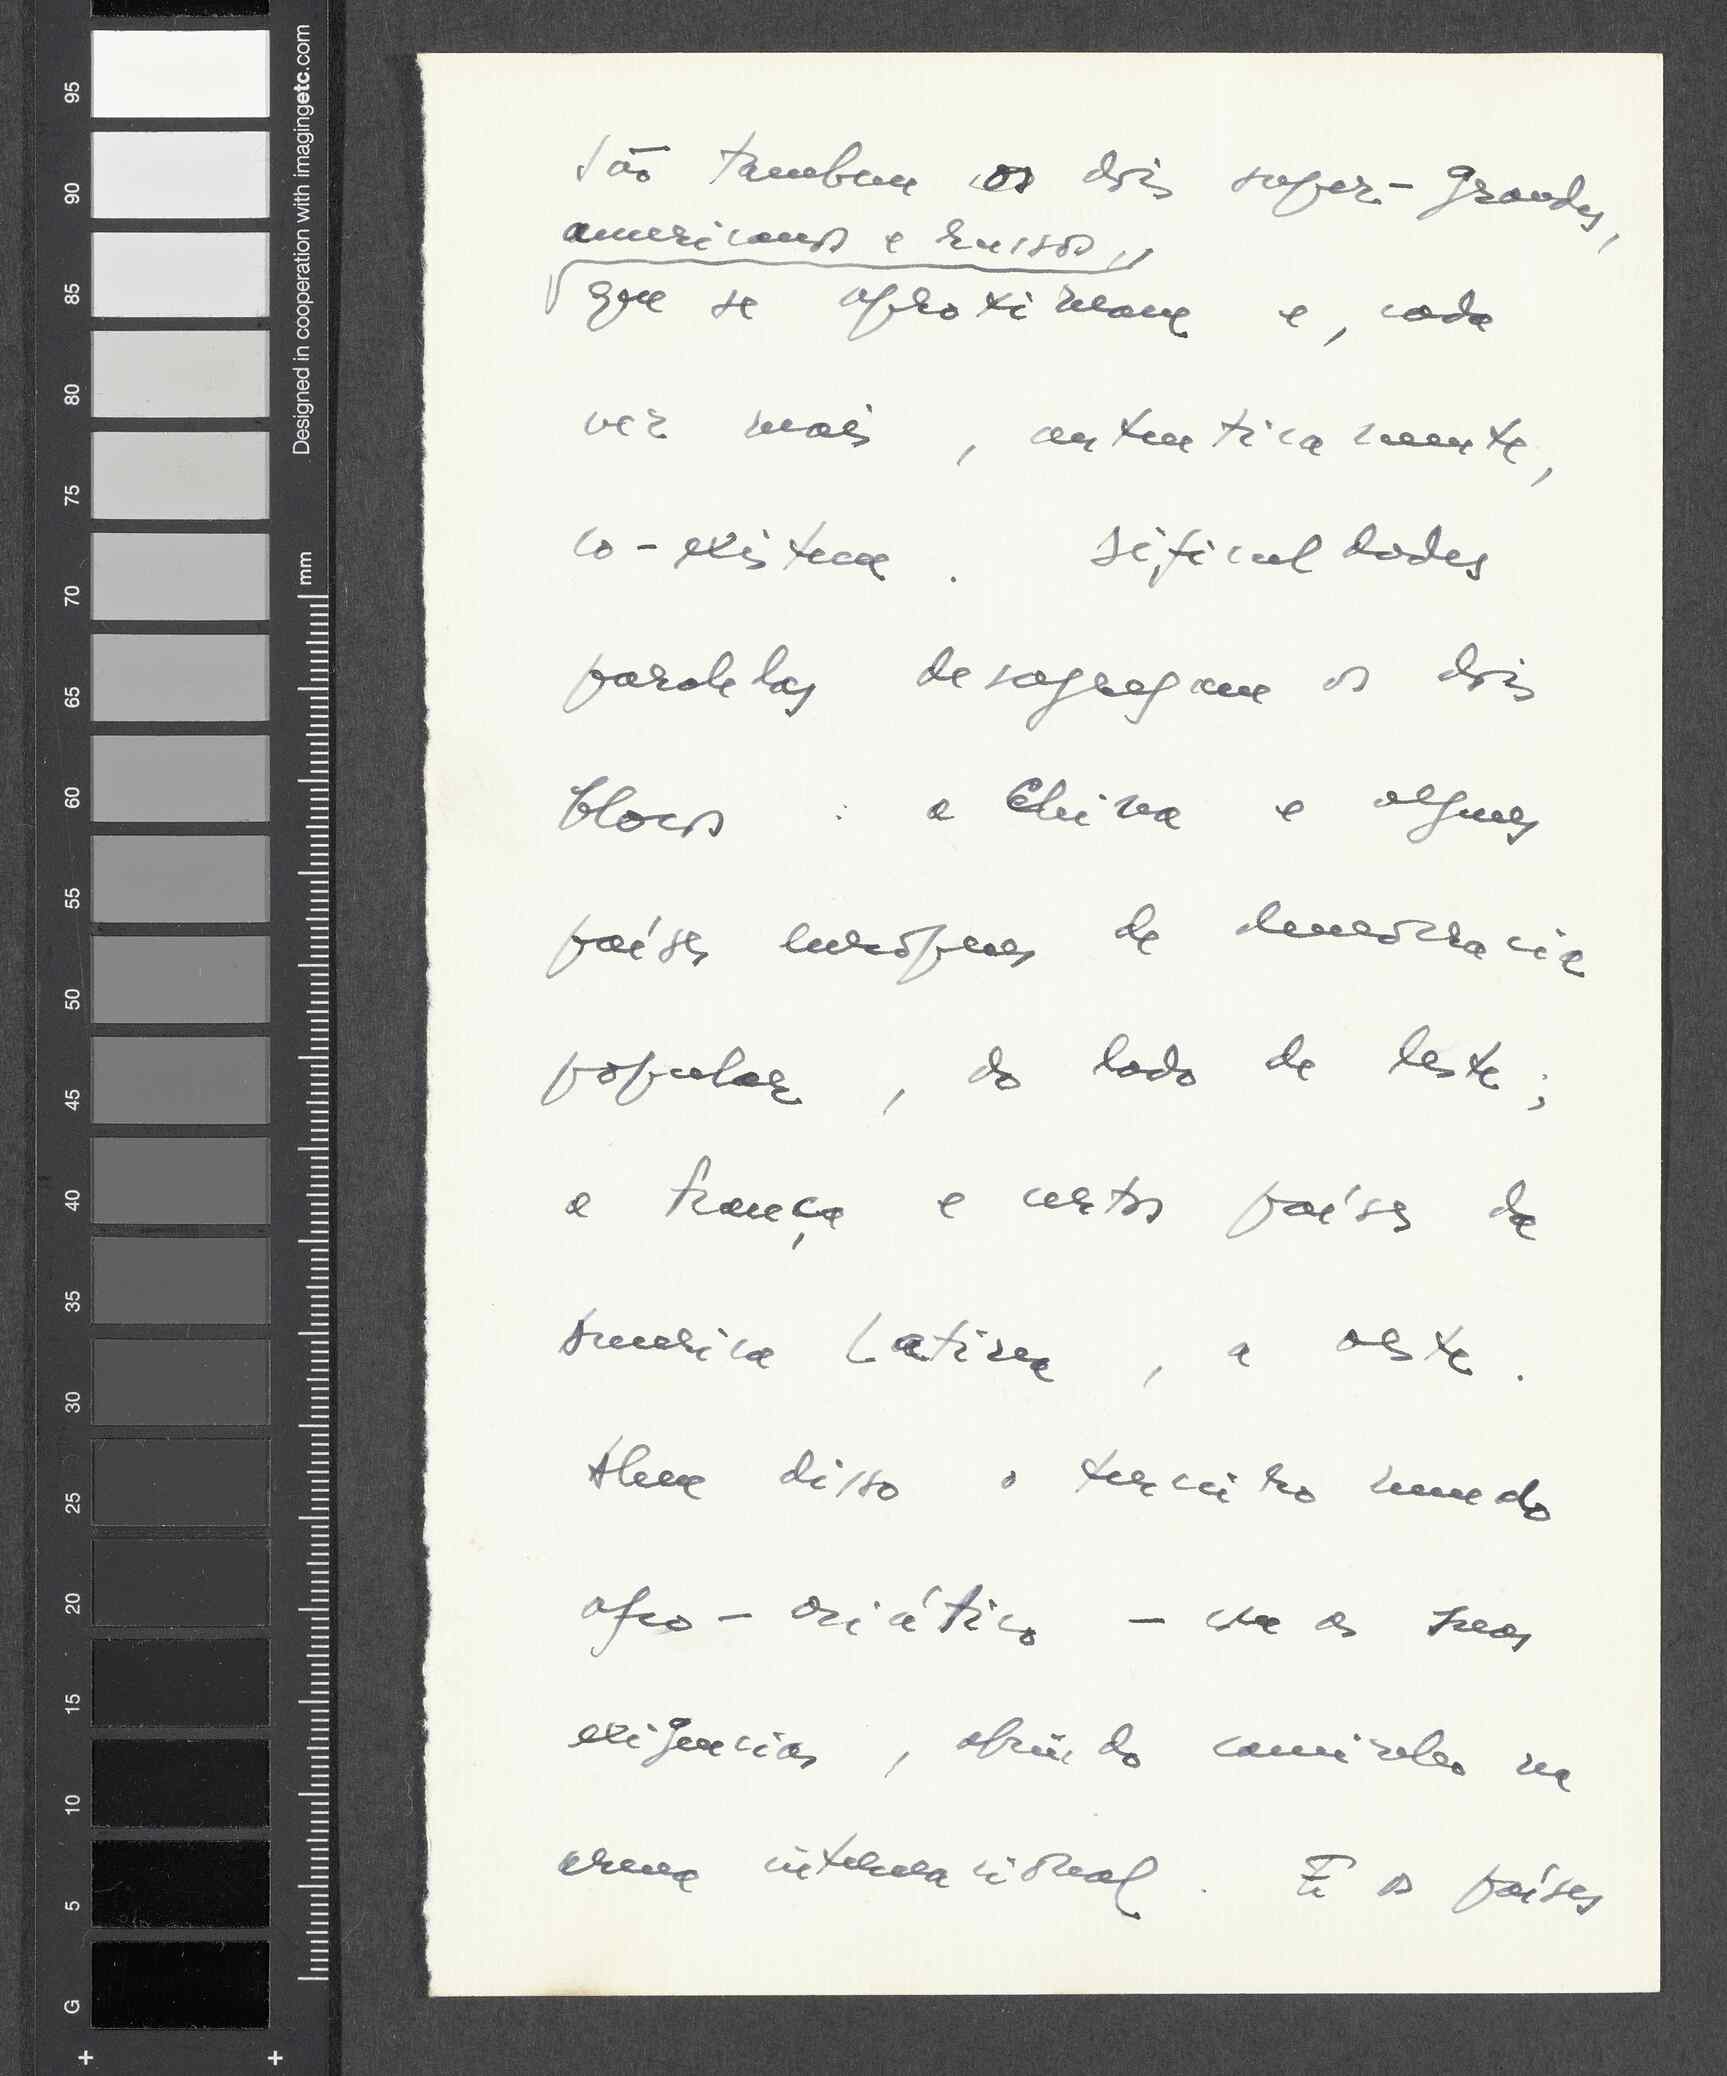 São tambem os dois super-grandes,
americanos e russos,
que se aproximam e, cada
vez mais, autenticamente,
co-existem. Dificuldades
paralelas desagregam os dois
blocos: a China e algumas
países europeus de democracia
popular, do lado de leste;
a França e certos países da
America Latina, a oeste.
Alem disso o terceiro mundo
afro-asiático — com as suas
exigencias, abrindo caminho na
arena internacional. E os países
Designed in cooperation with imagingetc.com
mm
95
90
85
80
75
70
65
60
55
50
45
40
35
30
25
20
15
10
5
G